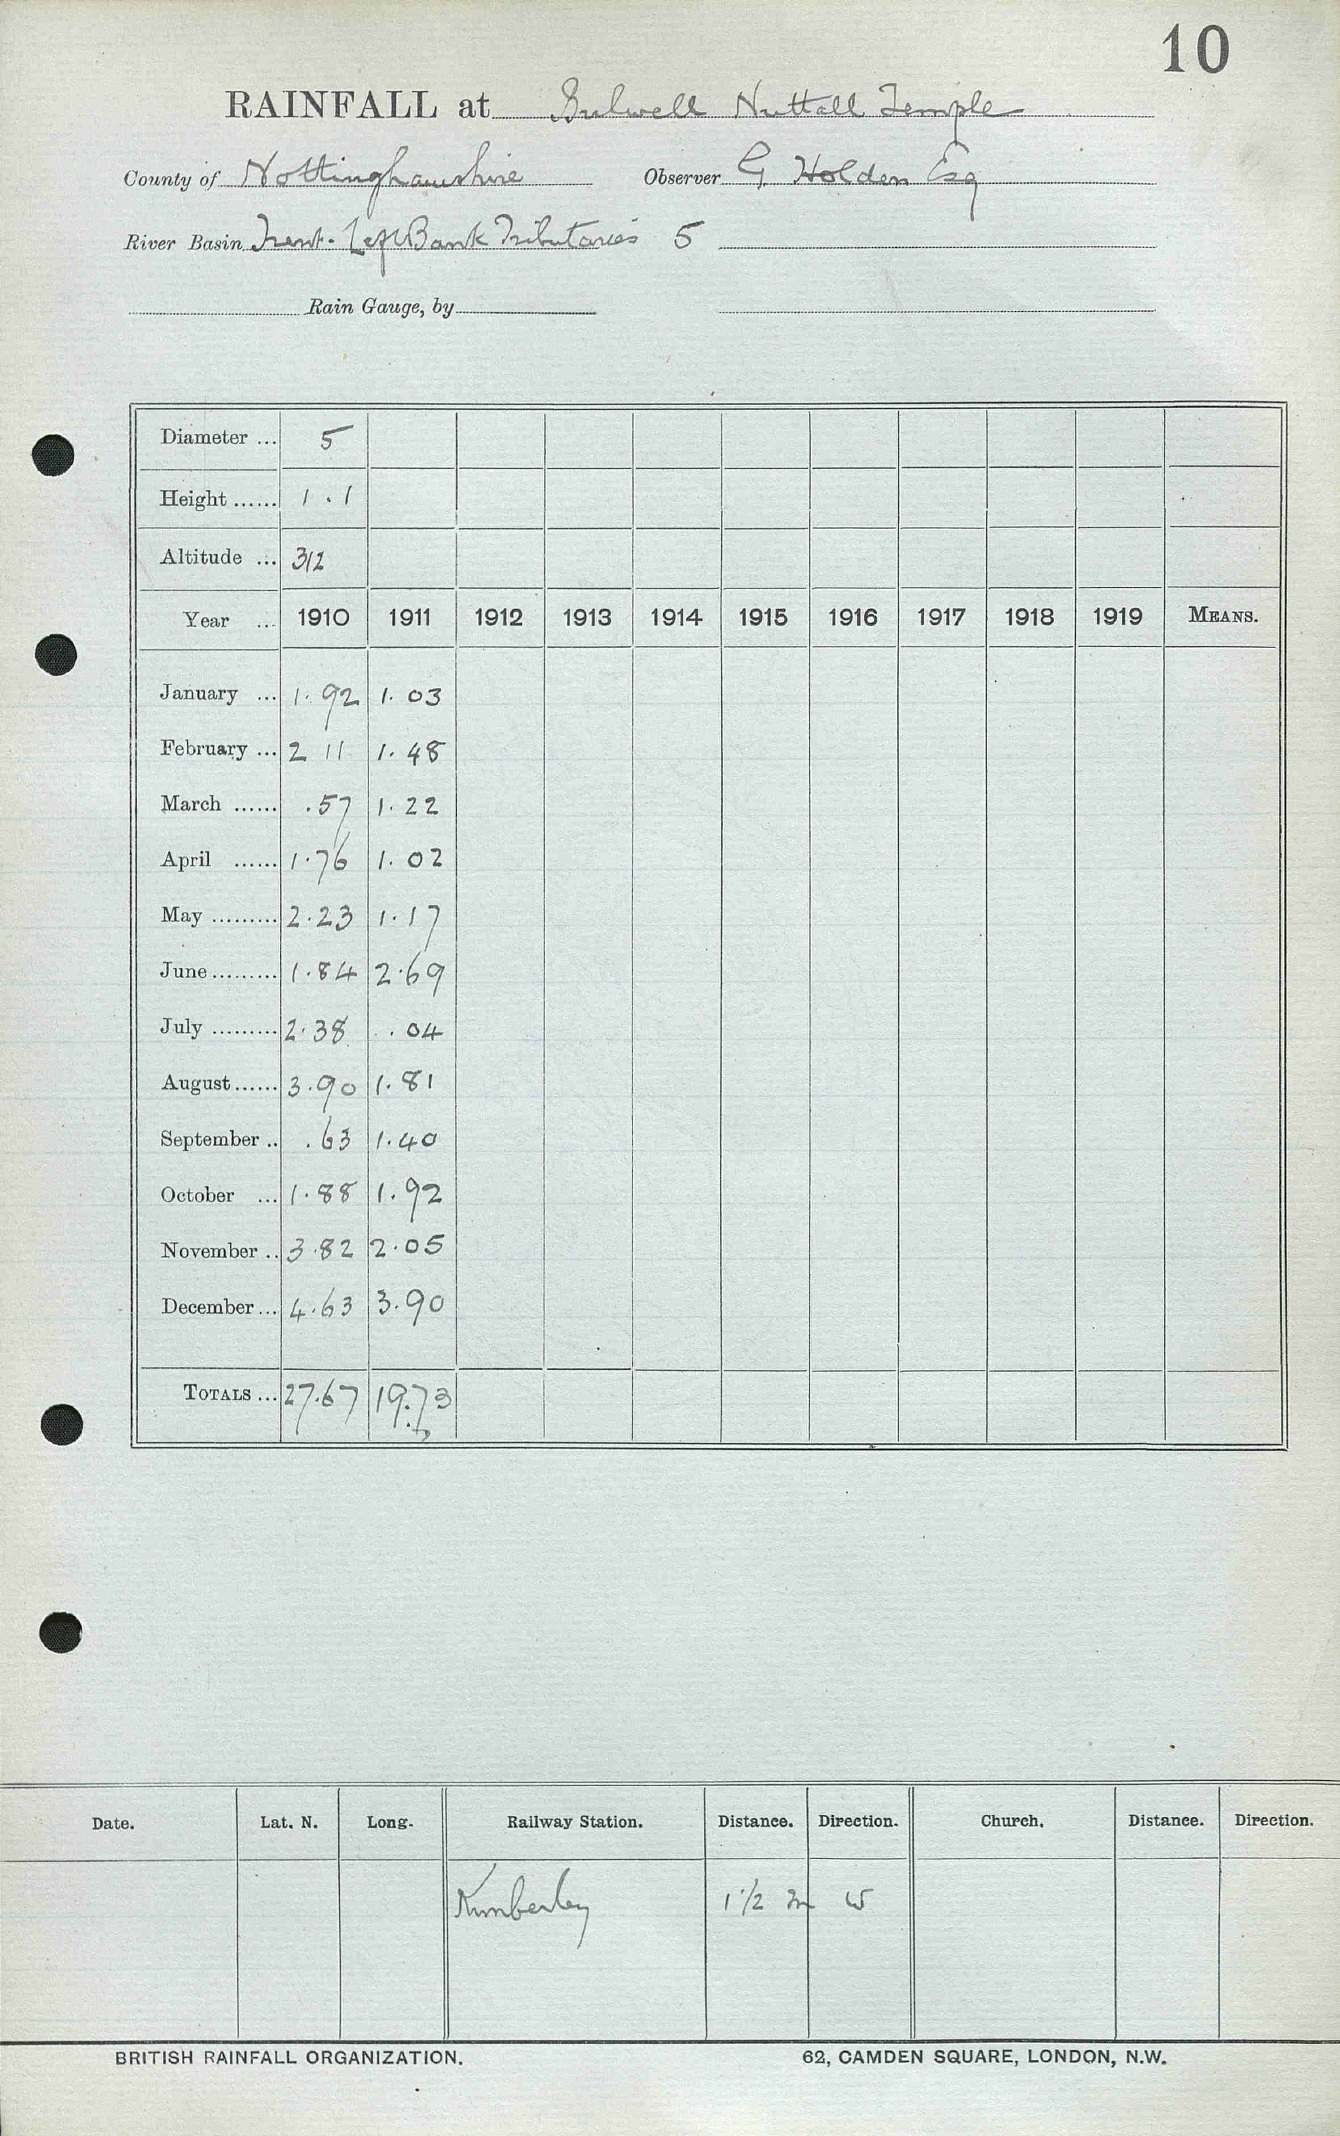 10
RAINFALL at Bulwell Nuttall Temple
County of Nottinghamshire Observer G. Holden Esq
River Basin Trent. Left Bank Tributaries 5
Rain Gauge, by
Diameter ... 5
Height ...... 1.1
Altitude ... 312
Year ... 1910 1911 1912 1913 1914 1915 1916 1917 1918 1919 MEANS.
January ... 1.92 1.03
February ... 2 11 1.48
March ...... .57 1.22
April ...... 1.76 1.02
May ......... 2.23 1.17
June ......... 1.84 2.69
July ......... 2.38 .04
August ...... 3.90 1.81
September .. .63 1.40
October ... 1.88 1.92
November .. 3.82 2.05
December ... 4.63 3.90
TOTALS ... 27.67 19.73
Date. Lat. N. Long. Railway Station. Distance. Direction. Church. Distance. Direction.
Kimberley 1 1/2 m W
BRITISH RAINFALL ORGANIZATION. 62, CAMDEN SQUARE, LONDON, N.W.